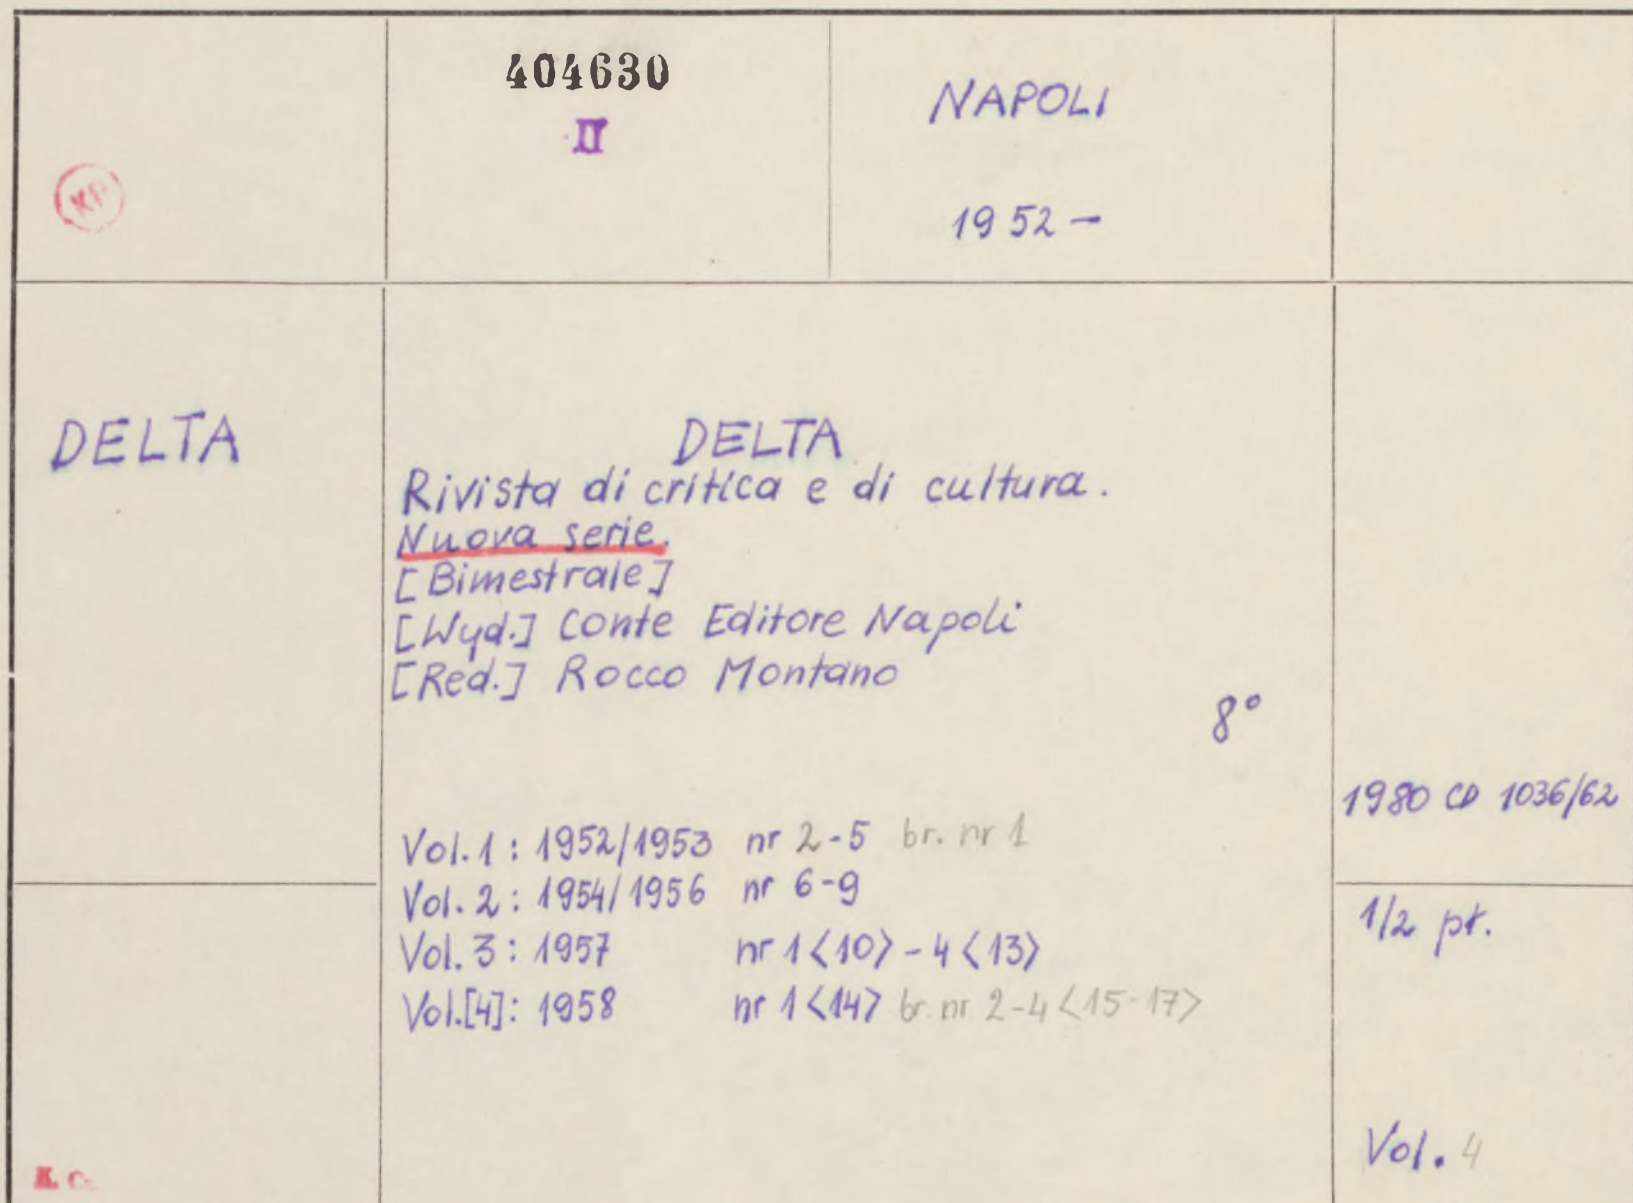 404630
II
NAPOLI
1952 -
KP
DELTA
DELTA
Rivista di critica e di cultura.
Nuova serie.
[Bimestrale]
[Wyd.] Conte Editore Napoli
[Red.] Rocco Montano
8°
1980 CD 1036/62
Vol. 1 : 1952/1953 nr 2-5 br. nr 1
Vol. 2 : 1954/1956 nr 6-9
Vol. 3 : 1957 nr 1 <10> - 4 <13>
Vol.[4]: 1958 nr 1 <14> br. nr 2-4 <15-17>
1/2 pt.
Vol. 4